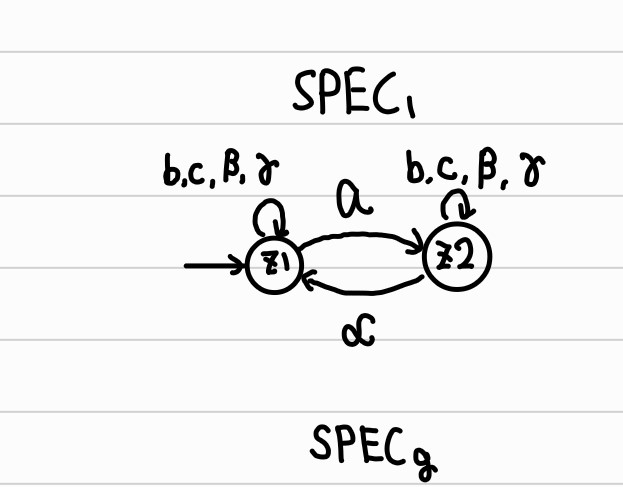 SPEC₁
b,c,β,γ b,c,β,γ
a
z1 z2
α
SPECg